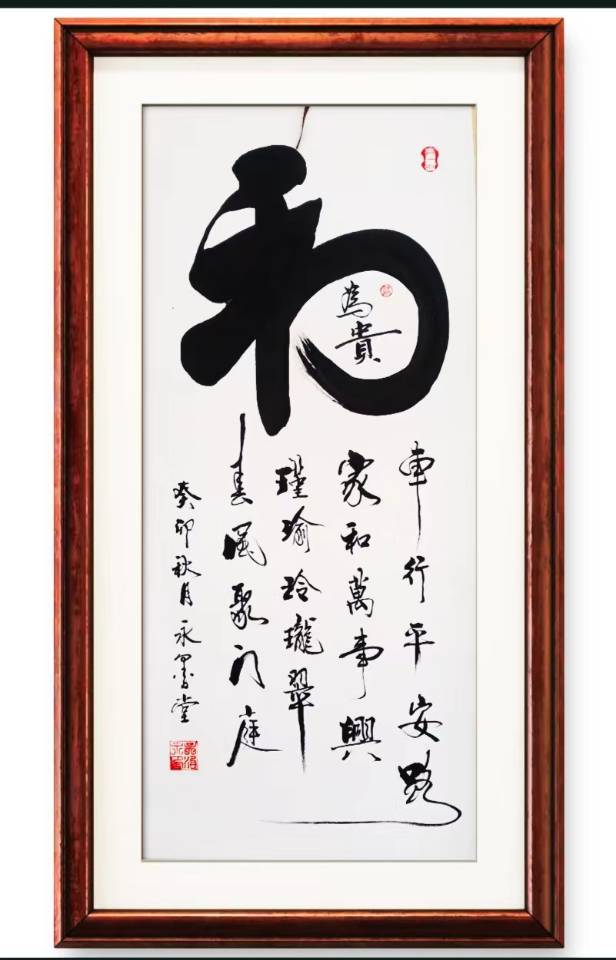 和
為貴
車行平安路
家和萬事興
瑾瑜玲瓏翠
春風聚门庭
癸卯秋月永墨堂